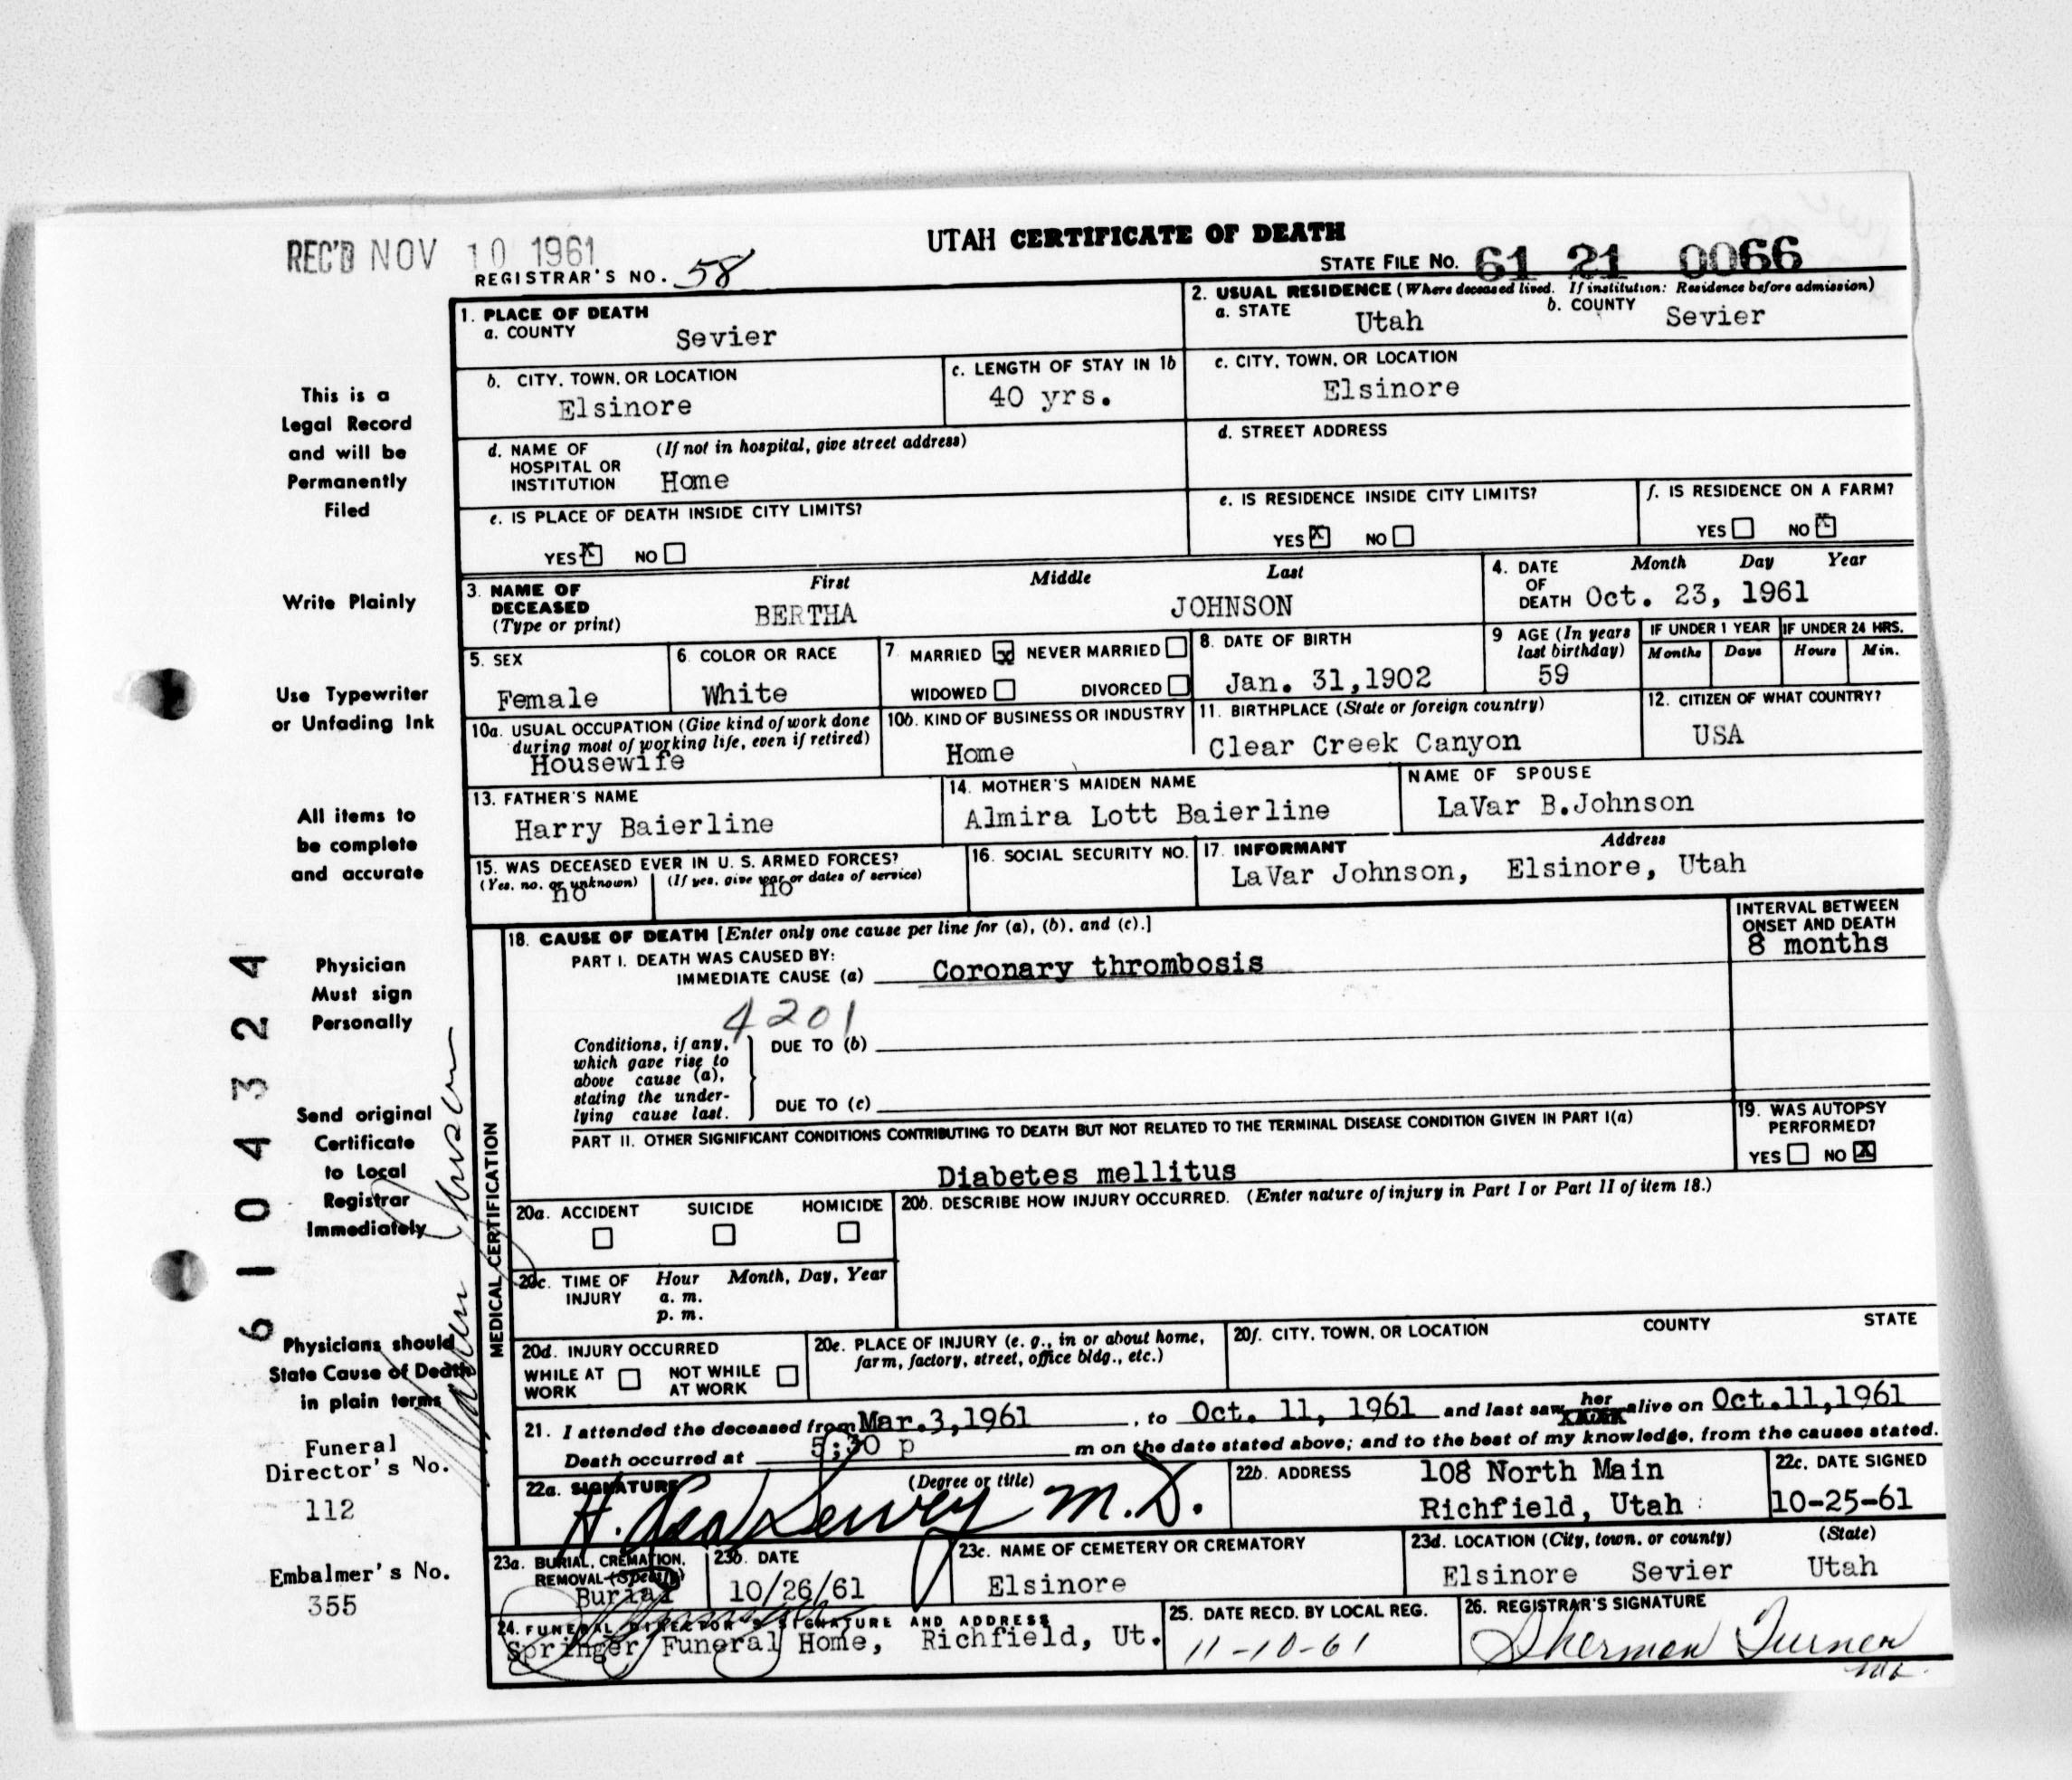 UTAH CERTIFICATE OF DEATH
REC'D NOV 10 1961
REGISTRAR'S NO. 58
STATE FILE NO. 61 21 0066
1. PLACE OF DEATH
a. COUNTY Sevier
2. USUAL RESIDENCE (Where deceased lived. If institution: Residence before admission)
a. STATE Utah b. COUNTY Sevier
b. CITY, TOWN, OR LOCATION
Elsinore
c. LENGTH OF STAY IN 1b
40 yrs.
c. CITY, TOWN, OR LOCATION
Elsinore
d. NAME OF HOSPITAL OR INSTITUTION (If not in hospital, give street address)
Home
d. STREET ADDRESS
e. IS PLACE OF DEATH INSIDE CITY LIMITS?
YES X NO
e. IS RESIDENCE INSIDE CITY LIMITS?
YES X NO
f. IS RESIDENCE ON A FARM?
YES NO X
3. NAME OF DECEASED (Type or print)
First Middle Last
BERTHA JOHNSON
4. DATE OF DEATH Month Day Year
Oct. 23, 1961
5. SEX
Female
6. COLOR OR RACE
White
7. MARRIED X NEVER MARRIED
WIDOWED DIVORCED
8. DATE OF BIRTH
Jan. 31,1902
9 AGE (In years last birthday)
59
IF UNDER 1 YEAR
Months Days
IF UNDER 24 HRS.
Hours Min.
10a. USUAL OCCUPATION (Give kind of work done during most of working life, even if retired)
Housewife
10b. KIND OF BUSINESS OR INDUSTRY
Home
11. BIRTHPLACE (State or foreign country)
Clear Creek Canyon
12. CITIZEN OF WHAT COUNTRY?
USA
13. FATHER'S NAME
Harry Baierline
14. MOTHER'S MAIDEN NAME
Almira Lott Baierline
NAME OF SPOUSE
LaVar B.Johnson
15. WAS DECEASED EVER IN U. S. ARMED FORCES?
(Yes, no, or unknown) (If yes, give war or dates of service)
no no
16. SOCIAL SECURITY NO.
17. INFORMANT Address
LaVar Johnson, Elsinore, Utah
MEDICAL CERTIFICATION
18. CAUSE OF DEATH [Enter only one cause per line for (a), (b), and (c).]
INTERVAL BETWEEN ONSET AND DEATH
8 months
PART I. DEATH WAS CAUSED BY:
IMMEDIATE CAUSE (a) Coronary thrombosis
4201
Conditions, if any, which gave rise to above cause (a), stating the underlying cause last.
DUE TO (b)
DUE TO (c)
PART II. OTHER SIGNIFICANT CONDITIONS CONTRIBUTING TO DEATH BUT NOT RELATED TO THE TERMINAL DISEASE CONDITION GIVEN IN PART I(a)
Diabetes mellitus
19. WAS AUTOPSY PERFORMED?
YES NO X
20a. ACCIDENT SUICIDE HOMICIDE
20b. DESCRIBE HOW INJURY OCCURRED. (Enter nature of injury in Part I or Part II of item 18.)
20c. TIME OF INJURY Hour Month, Day, Year
a. m.
p. m.
20d. INJURY OCCURRED
WHILE AT WORK NOT WHILE AT WORK
20e. PLACE OF INJURY (e. g., in or about home, farm, factory, street, office bldg., etc.)
20f. CITY, TOWN, OR LOCATION COUNTY STATE
21. I attended the deceased from Mar.3,1961, to Oct. 11, 1961 and last saw her alive on Oct.11,1961
Death occurred at 5:30 p m on the date stated above; and to the best of my knowledge, from the causes stated.
22a. SIGNATURE (Degree or title)
M.D.
22b. ADDRESS
108 North Main
Richfield, Utah
22c. DATE SIGNED
10-25-61
23a. BURIAL, CREMATION, REMOVAL (Specify)
Burial
23b. DATE
10/26/61
23c. NAME OF CEMETERY OR CREMATORY
Elsinore
23d. LOCATION (City, town, or county) (State)
Elsinore Sevier Utah
24. FUNERAL DIRECTOR'S SIGNATURE AND ADDRESS
Springer Funeral Home, Richfield, Ut.
25. DATE RECD. BY LOCAL REG.
11-10-61
26. REGISTRAR'S SIGNATURE
Sherman Turner
This is a
Legal Record
and will be
Permanently
Filed
Write Plainly
Use Typewriter
or Unfading Ink
All items to
be complete
and accurate
Physician
Must sign
Personally
Send original
Certificate
to Local
Registrar
Immediately
Physicians should
State Cause of Death
in plain terms
Funeral
Director's No.
112
Embalmer's No.
355
6104324